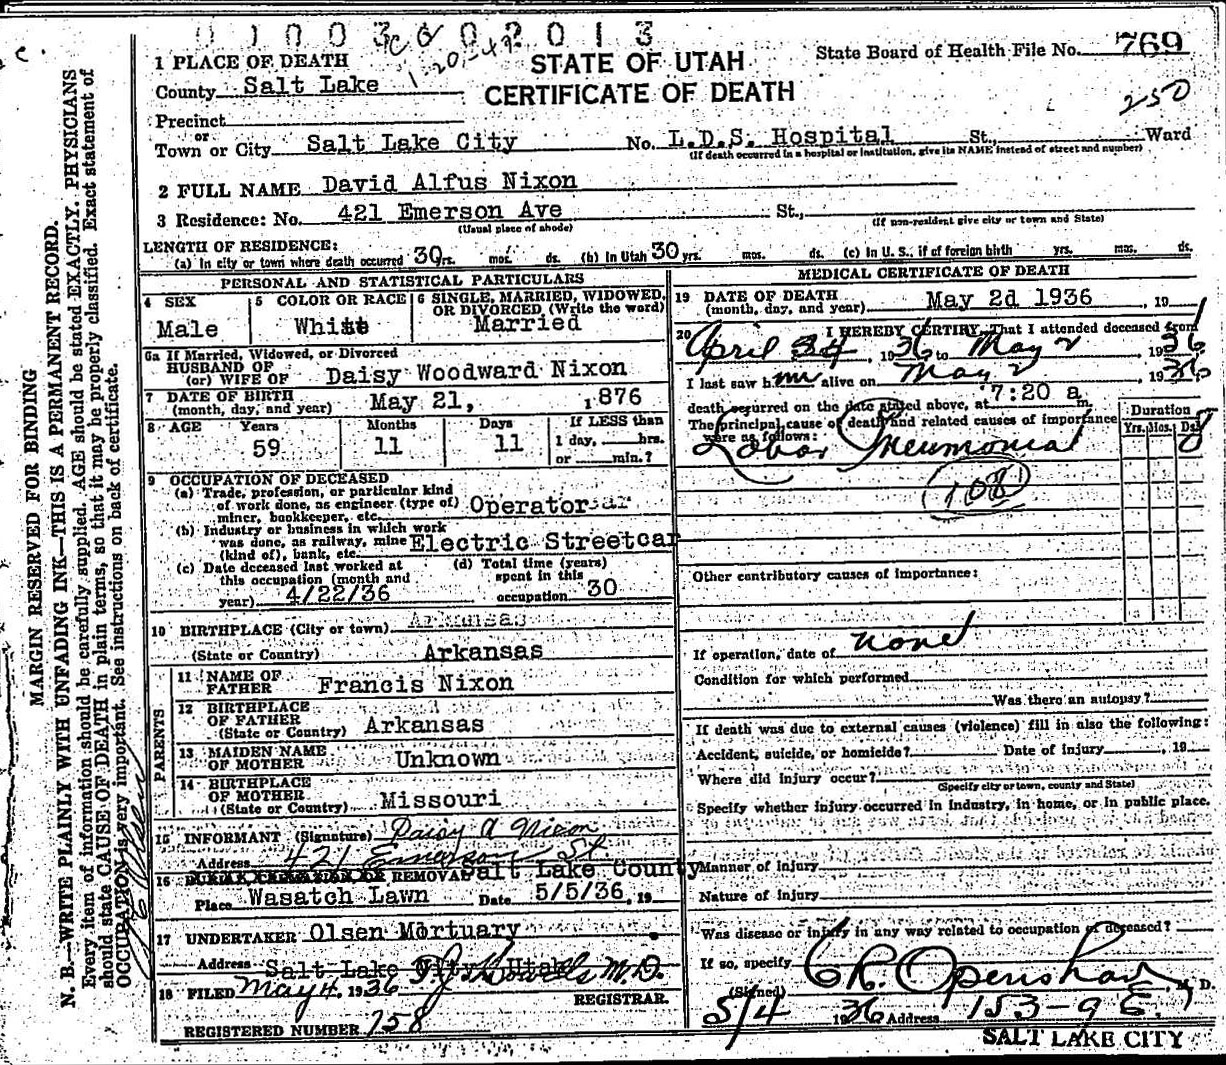 01003602013
c.
1-20-47
STATE OF UTAH
CERTIFICATE OF DEATH
State Board of Health File No. 769
250
1 PLACE OF DEATH
County Salt Lake
Precinct
or
Town or City Salt Lake City No. L.D.S. Hospital St., Ward
(If death occurred in a hospital or institution, give its NAME instead of street and number)
2 FULL NAME David Alfus Nixon
3 Residence: No. 421 Emerson Ave St.,
(Usual place of abode) (If non-resident give city or town and State)
LENGTH OF RESIDENCE:
(a) In city or town where death occurred 30 yrs. mos. ds. (b) In Utah 30 yrs. mos. ds. (c) In U. S., if of foreign birth yrs. mos. ds.
PERSONAL AND STATISTICAL PARTICULARS
4 SEX
Male
5 COLOR OR RACE
White
6 SINGLE, MARRIED, WIDOWED,
OR DIVORCED, (Write the word)
Married
6a If Married, Widowed, or Divorced
HUSBAND OF
(or) WIFE OF Daisy Woodward Nixon
7 DATE OF BIRTH
(month, day, and year) May 21, 1876
8 AGE Years Months Days If LESS than
59 11 11 1 day, hrs.
or min.?
9 OCCUPATION OF DECEASED
(a) Trade, profession, or particular kind
of work done, as engineer (type of)
miner, bookkeeper, etc. Operator
(b) Industry or business in which work
was done, as railway, mine
(kind of), bank, etc. Electric Streetcar
(c) Date deceased last worked at
this occupation (month and
year) 4/22/36
(d) Total time (years)
spent in this
occupation 30
10 BIRTHPLACE (City or town) Arkansas
(State or Country) Arkansas
PARENTS
11 NAME OF
FATHER Francis Nixon
12 BIRTHPLACE
OF FATHER
(State or Country) Arkansas
13 MAIDEN NAME
OF MOTHER Unknown
14 BIRTHPLACE
OF MOTHER
(State or Country) Missouri
15 INFORMANT (Signature) Daisy A Nixon
Address 421 Emerson St
16 BURIAL CREMATION OR REMOVAL Salt Lake County
Place Wasatch Lawn Date 5/5/36, 19
17 UNDERTAKER Olsen Mortuary
Address Salt Lake City Utah
18 FILED May 4, 1936 M.D.
REGISTRAR.
REGISTERED NUMBER 758
MEDICAL CERTIFICATE OF DEATH
19 DATE OF DEATH
(month, day, and year) May 2d 1936, 19
20 I HEREBY CERTIFY, That I attended deceased from
April, 1936 to May 2, 1936
I last saw him alive on May 2, 1936
death occurred on the date stated above, at 7:20 a m.
The principal cause of death and related causes of importance
were as follows:
Lobar Pneumonia
108
Duration
Yrs. Mos. Ds.
8
Other contributory causes of importance:
If operation, date of none
Condition for which performed
Was there an autopsy?
If death was due to external causes (violence) fill in also the following:
Accident, suicide, or homicide? Date of injury , 19
Where did injury occur?
(Specify city or town, county and State)
Specify whether injury occurred in industry, in home, or in public place.
Manner of injury
Nature of injury
Was disease or injury in any way related to occupation of deceased?
If so, specify
(Signed) C R Openshaw, M. D.
5/4 1936 Address 153-9 E.
SALT LAKE CITY
MARGIN RESERVED FOR BINDING
N. B.—WRITE PLAINLY WITH UNFADING INK—THIS IS A PERMANENT RECORD.
Every item of information should be carefully supplied. AGE should be stated EXACTLY. PHYSICIANS
should state CAUSE OF DEATH in plain terms, so that it may be properly classified. Exact statement of
OCCUPATION is very important. See instructions on back of certificate.